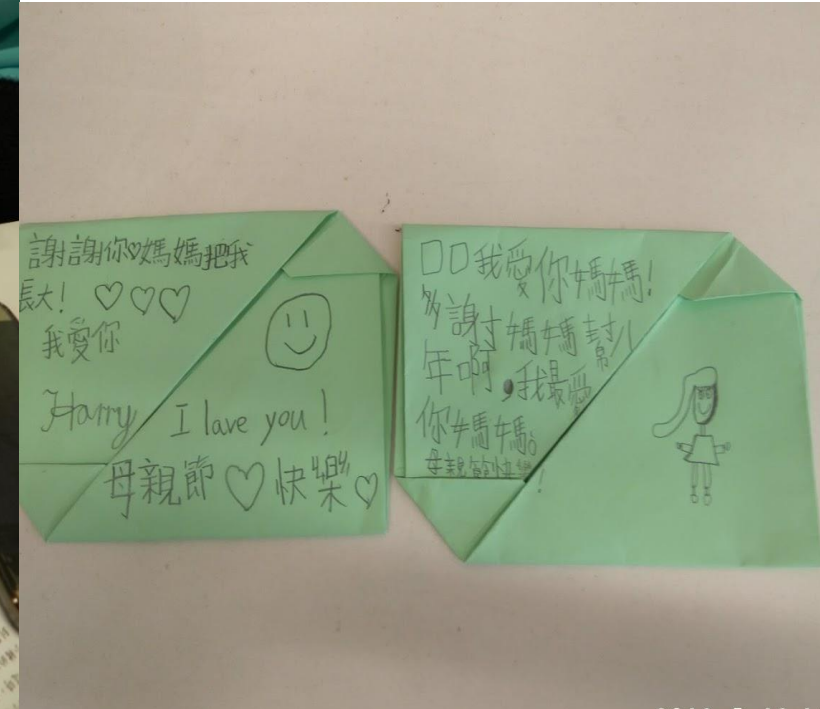 謝謝你媽媽把我
長大！
我愛你
Harry
I lave you!
母親節 快樂
我愛你媽媽!
多謝媽媽幫八
年啊,我最愛
你媽媽。
母親節快樂!